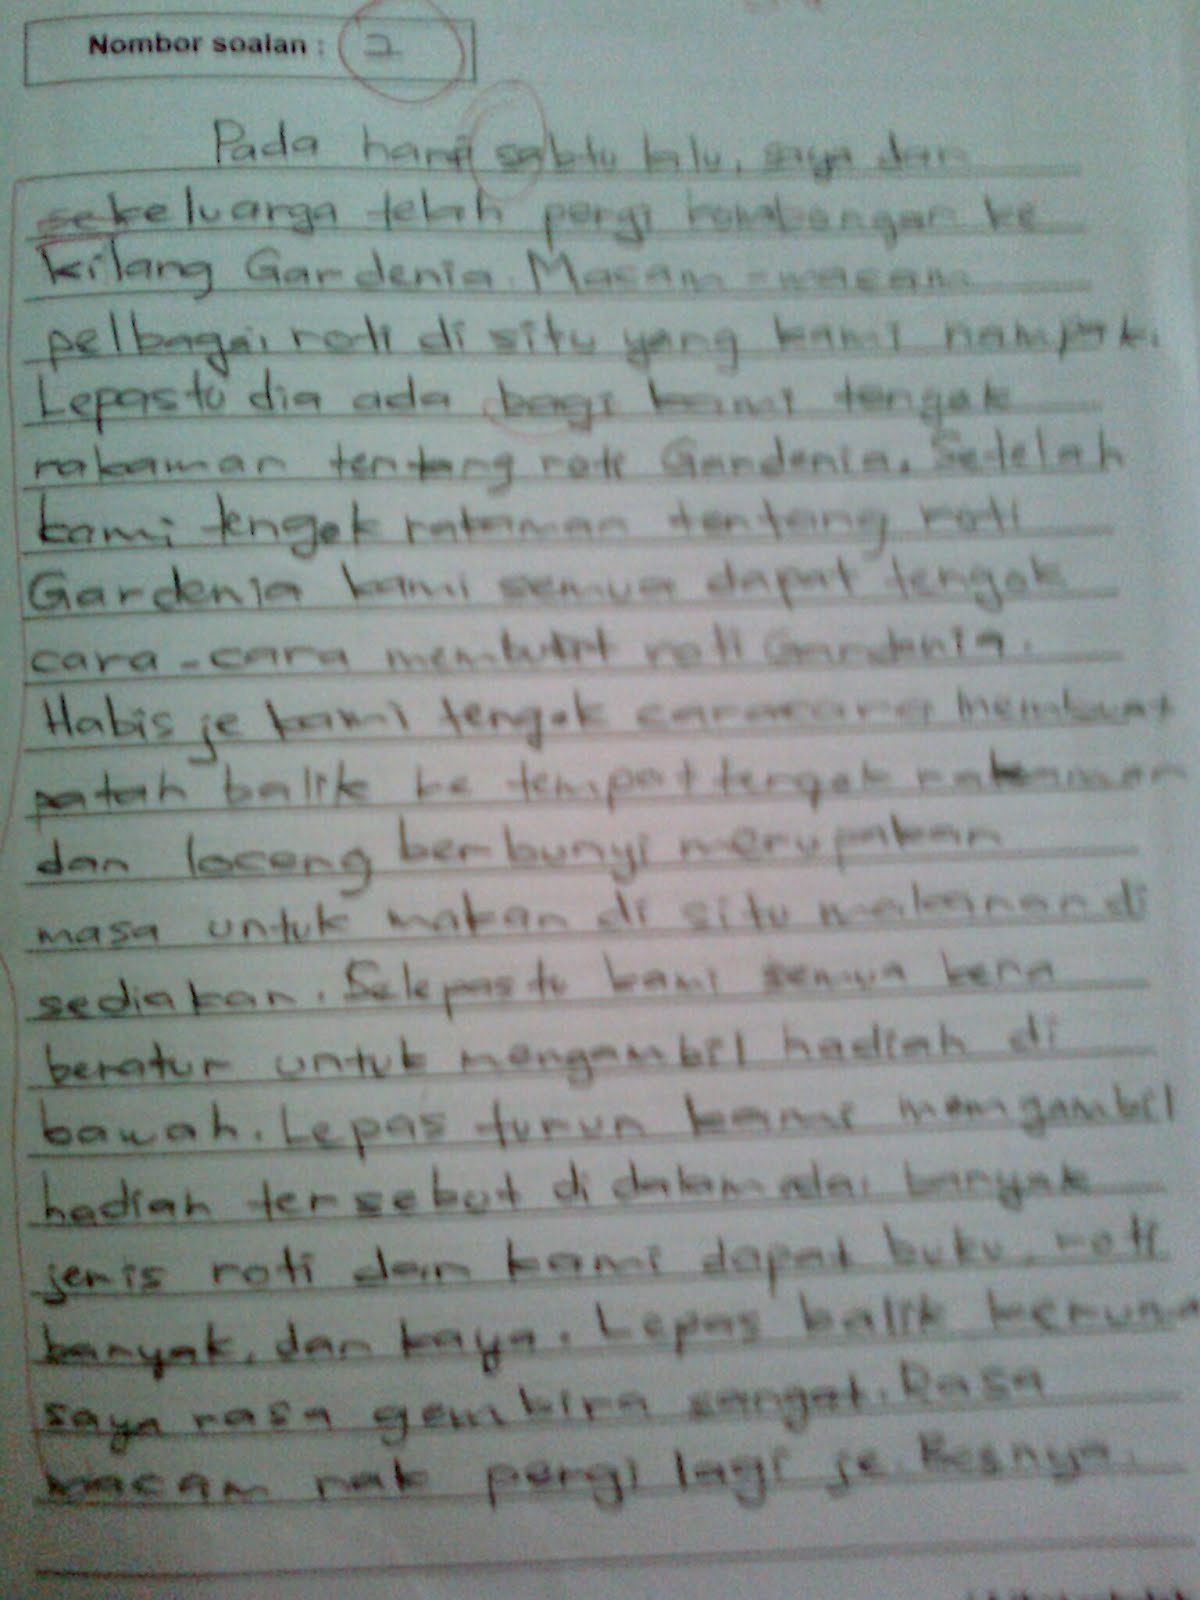 Nombor soalan : 2
Pada hari sabtu lalu, saya dan
sekeluarga telah pergi rombongan ke
kilang Gardenia. Macam-macam
pelbagai roti di situ yang kami nampak.
Lepastu dia ada bagi kami tengok
rakaman tentang roti Gardenia. Setelah
kami tengok rakaman tentang roti
Gardenia kami semua dapat tengok
cara-cara membuat roti Gardenia.
Habis je kami tengok caracara membuat
patah balik ke tempat tengok rakaman
dan loceng berbunyi merupakan
masa untuk makan di situ makanan di
sediakan. Selepastu kami semua kena
beratur untuk mengambil hadiah di
bawah. Lepas turun kami mengambil
hadiah tersebut di dalam ada banyak
jenis roti dan kami dapat buku, roti
banyak, dan kaya. Lepas balik
saya rasa gembira sangat. Rasa
macam nak pergi lagi je. Besnya.